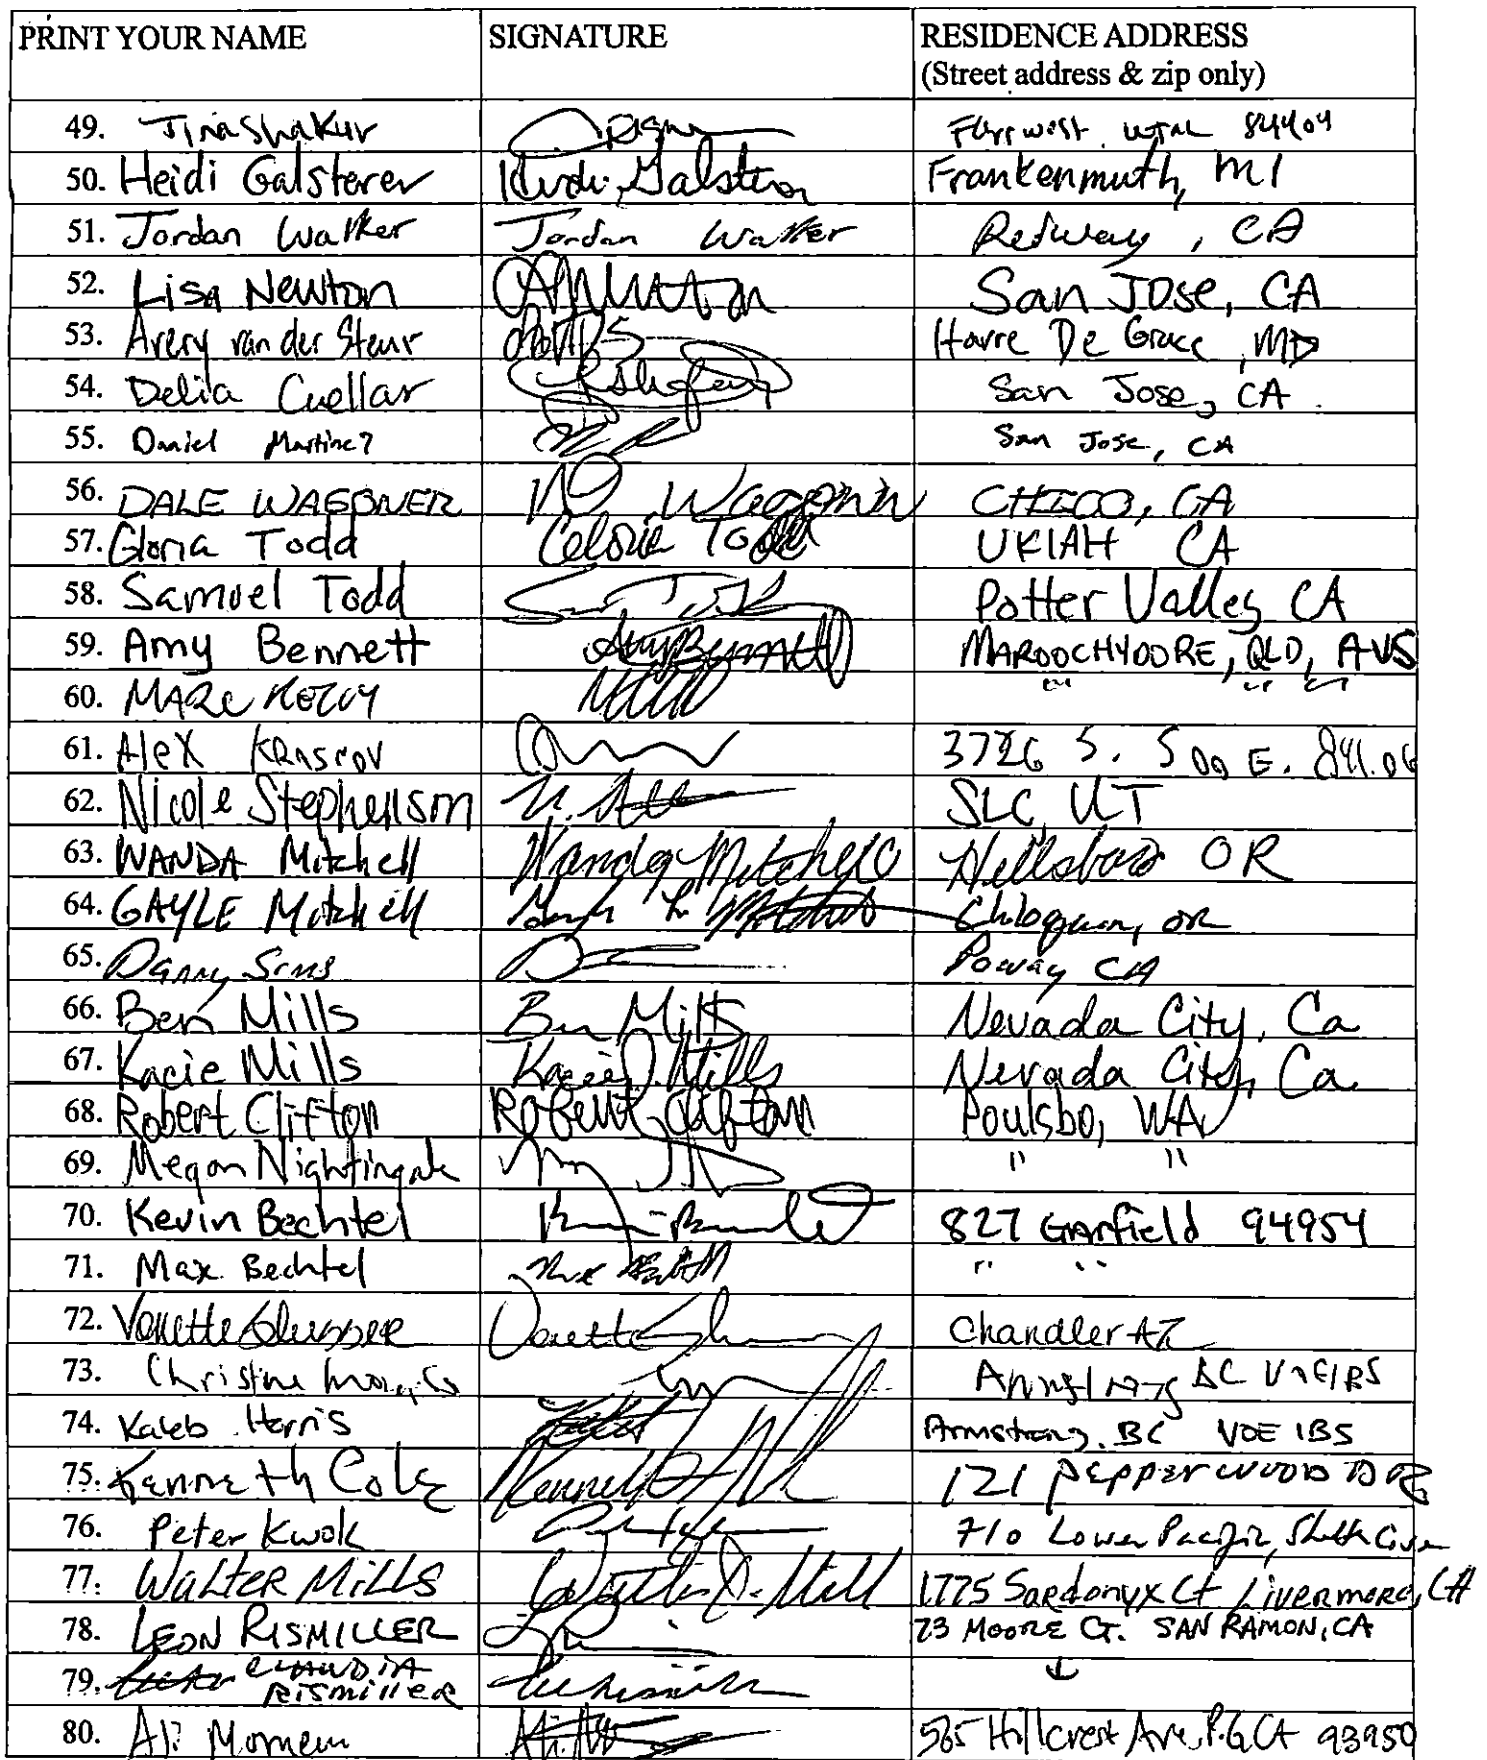 PRINT YOUR NAME SIGNATURE RESIDENCE ADDRESS
(Street address & zip only)
49. Tina Shakur Farr West Utah 84404
50. Heidi Galsterer Heidi Galsterer Frankenmuth, MI
51. Jordan Walker Jordan Walker Redway, CA
52. Lisa Newton San Jose, CA
53. Avery van der Steur Havre De Grace, MD
54. Delia Cuellar San Jose, CA
55. Daniel Martinez San Jose, CA
56. DALE WAGONER D Wagoner CHICO, CA
57. Gloria Todd Gloria Todd UKIAH CA
58. Samuel Todd Potter Valley CA
59. Amy Bennett Amy Bennett MAROOCHYDORE, QLD, AUS
60. MARC " " "
61. Alex 3726 S. 500 E. 84106
62. Nicole Stephenson SLC, UT
63. WANDA Mitchell Wanda Mitchell Hillsboro OR
64. GAYLE Mitchell Chiloquin, OR
65. Danny Sims Poway CA
66. Ben Mills Ben Mills Nevada City, Ca
67. Kacie Mills Kacie J. Mills Nevada City, Ca
68. Robert Clifton Robert Clifton Poulsbo, WA
69. Megan Nightingale " "
70. Kevin Bechtel 827 Garfield 94954
71. Max Bechtel Max " "
72. Vonette Vonette Chandler AZ
73. Christine BC
74. Kaleb Harris Armstrong, BC V0E 1B5
75. Kenneth Cole Kenneth 121 PEPPERWOOD DR
76. Peter Kwok 710 Lower Pacific, Shelter Cove
77. WALTER MILLS Walter D. Mills 1775 Sardonyx Ct Livermore, CA
78. LEON RISMILLER 23 MOORE CT. SAN RAMON, CA
79. CLAUDIA RISMILLER ↓
80. Ali 565 Hillcrest Ave, P.G CA 93950